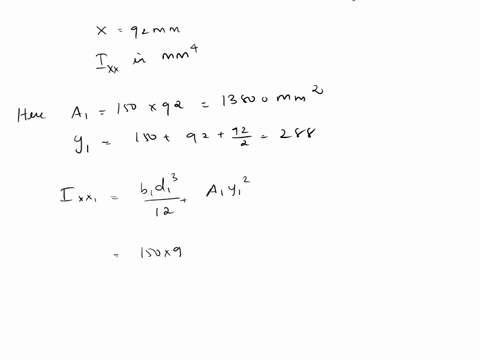 x = 92 mm
I_xx in mm^4
Here A_1 = 150 × 92 = 13800 mm^2
y_1 = 150 + 92 + 92/2 = 288
I_xx_1 = b_1 d_1^3 / 12 + A_1 y_1^2
= 150 × 9